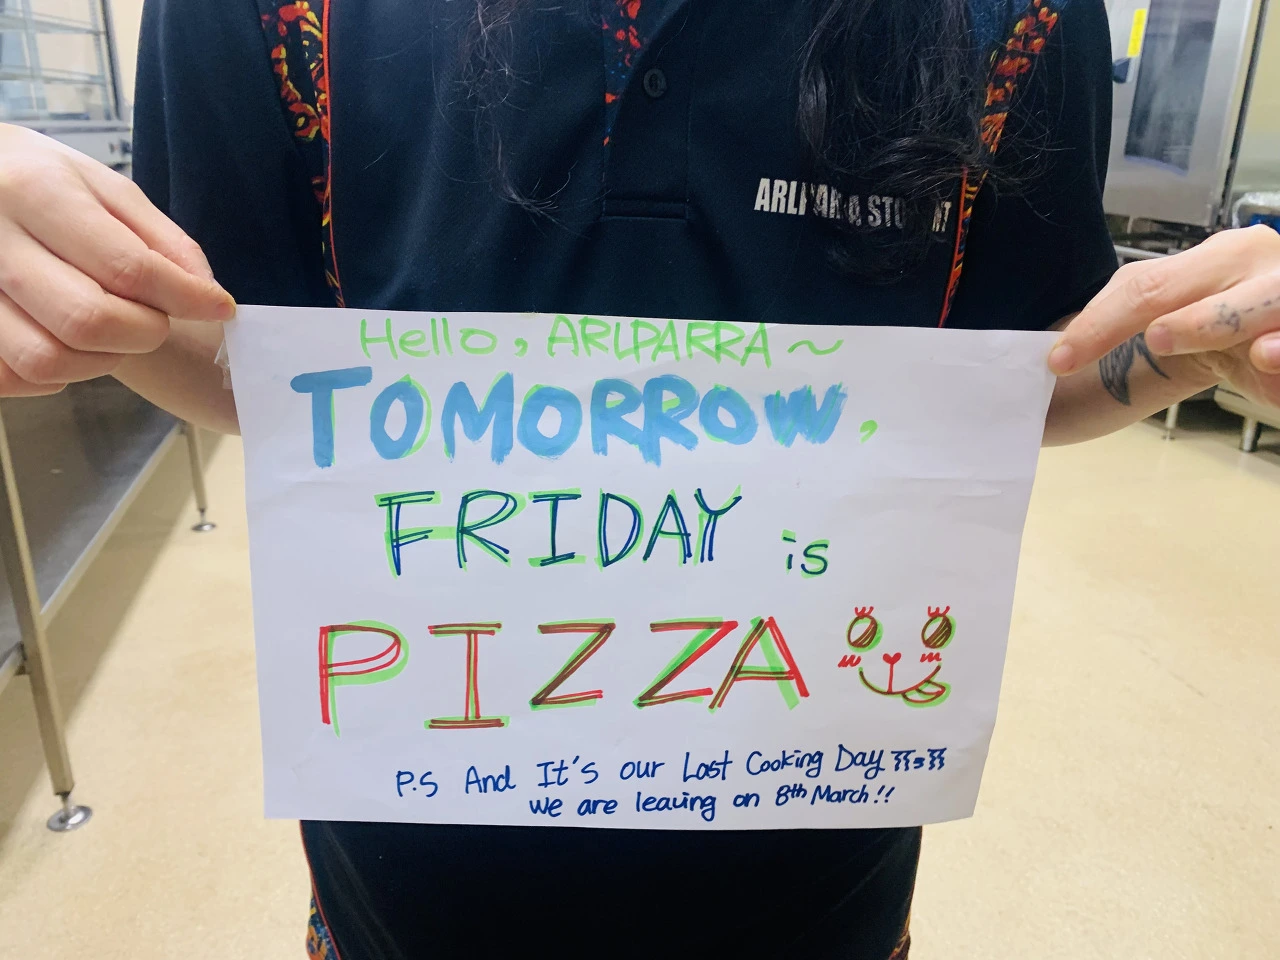 ARLPARRA STUDENT
Hello, ARLPARRA ~
TOMORROW,
FRIDAY is
PIZZA
P.S And It's our Last Cooking Day
we are leaving on 8th March!!